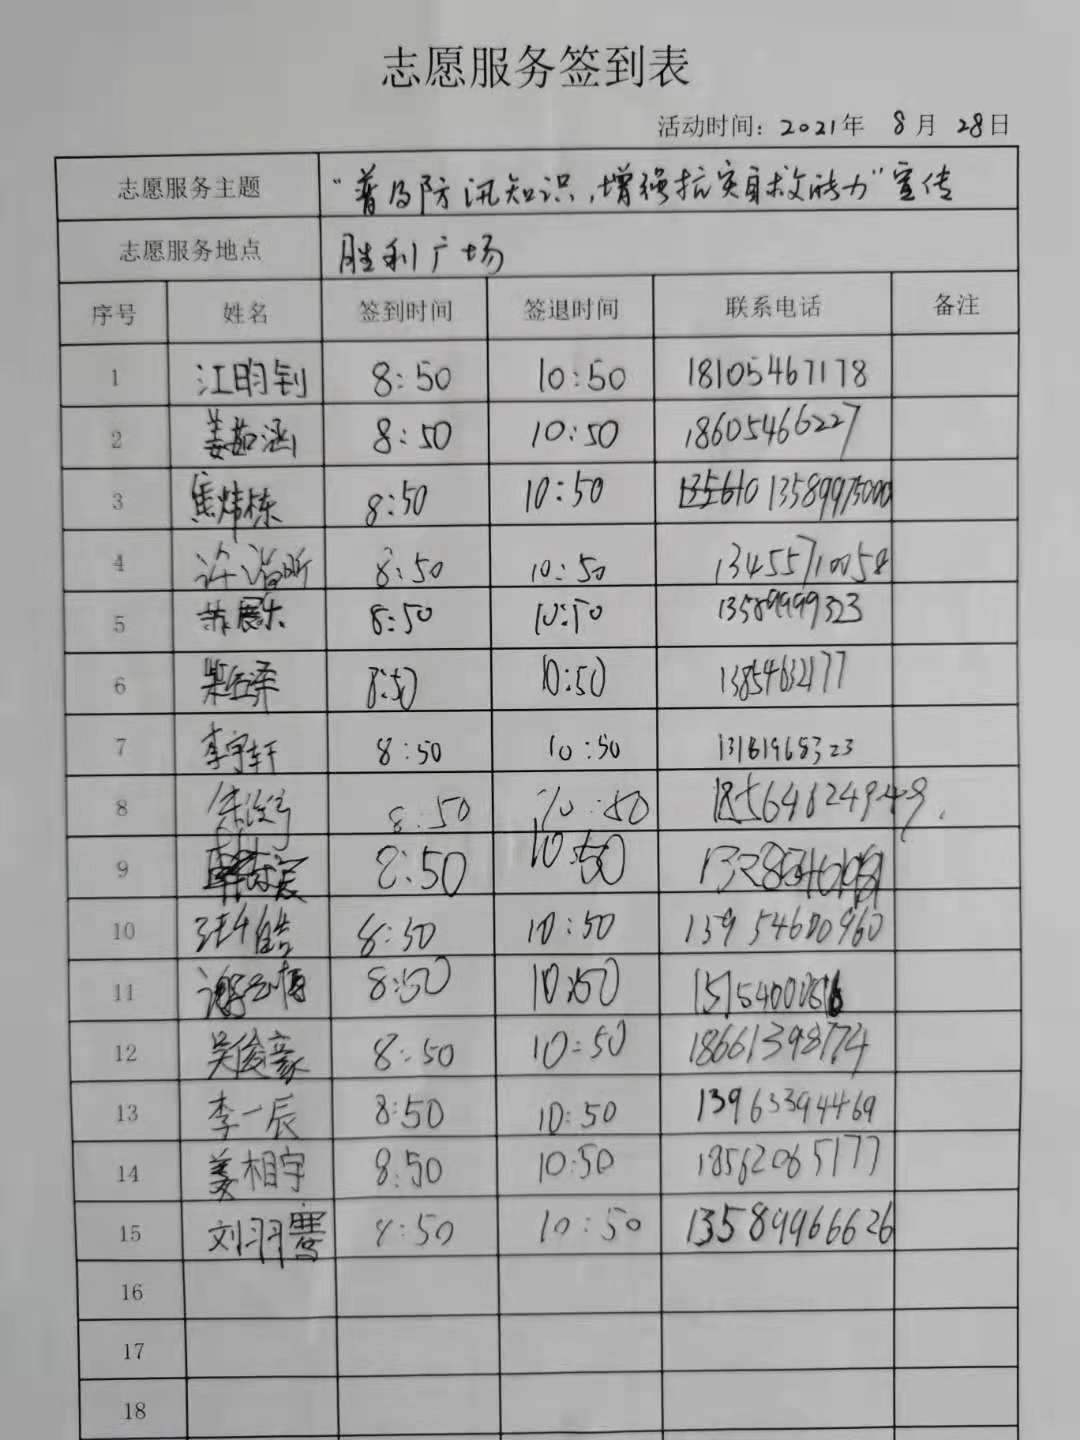 志愿服务签到表
活动时间：2021年 8月 28日
志愿服务主题 "普及防汛知识,增强抗灾自救能力"宣传
志愿服务地点 胜利广场
序号 姓名 签到时间 签退时间 联系电话 备注
1 江昀钊 8:50 10:50 18105467178
2 姜茹涵 8:50 10:50 18605466227
3 焦炜栋 8:50 10:50 13589975000
4 8:50 10:50 13455710058
5 8:50 10:50 13589999323
6 8:50 10:50 13854632177
7 李宇轩 8:50 10:50 13181968323
8 8:50 10:50 18564624949
9 8:50 10:50
10 8:50 10:50 13954600960
11 8:50 10:50
12 吴俊豪 8:50 10:50 18661398774
13 李一辰 8:50 10:50 13963394469
14 姜相宇 8:50 10:50 18562065177
15 刘羽骞 8:50 10:50 13589966626
16
17
18